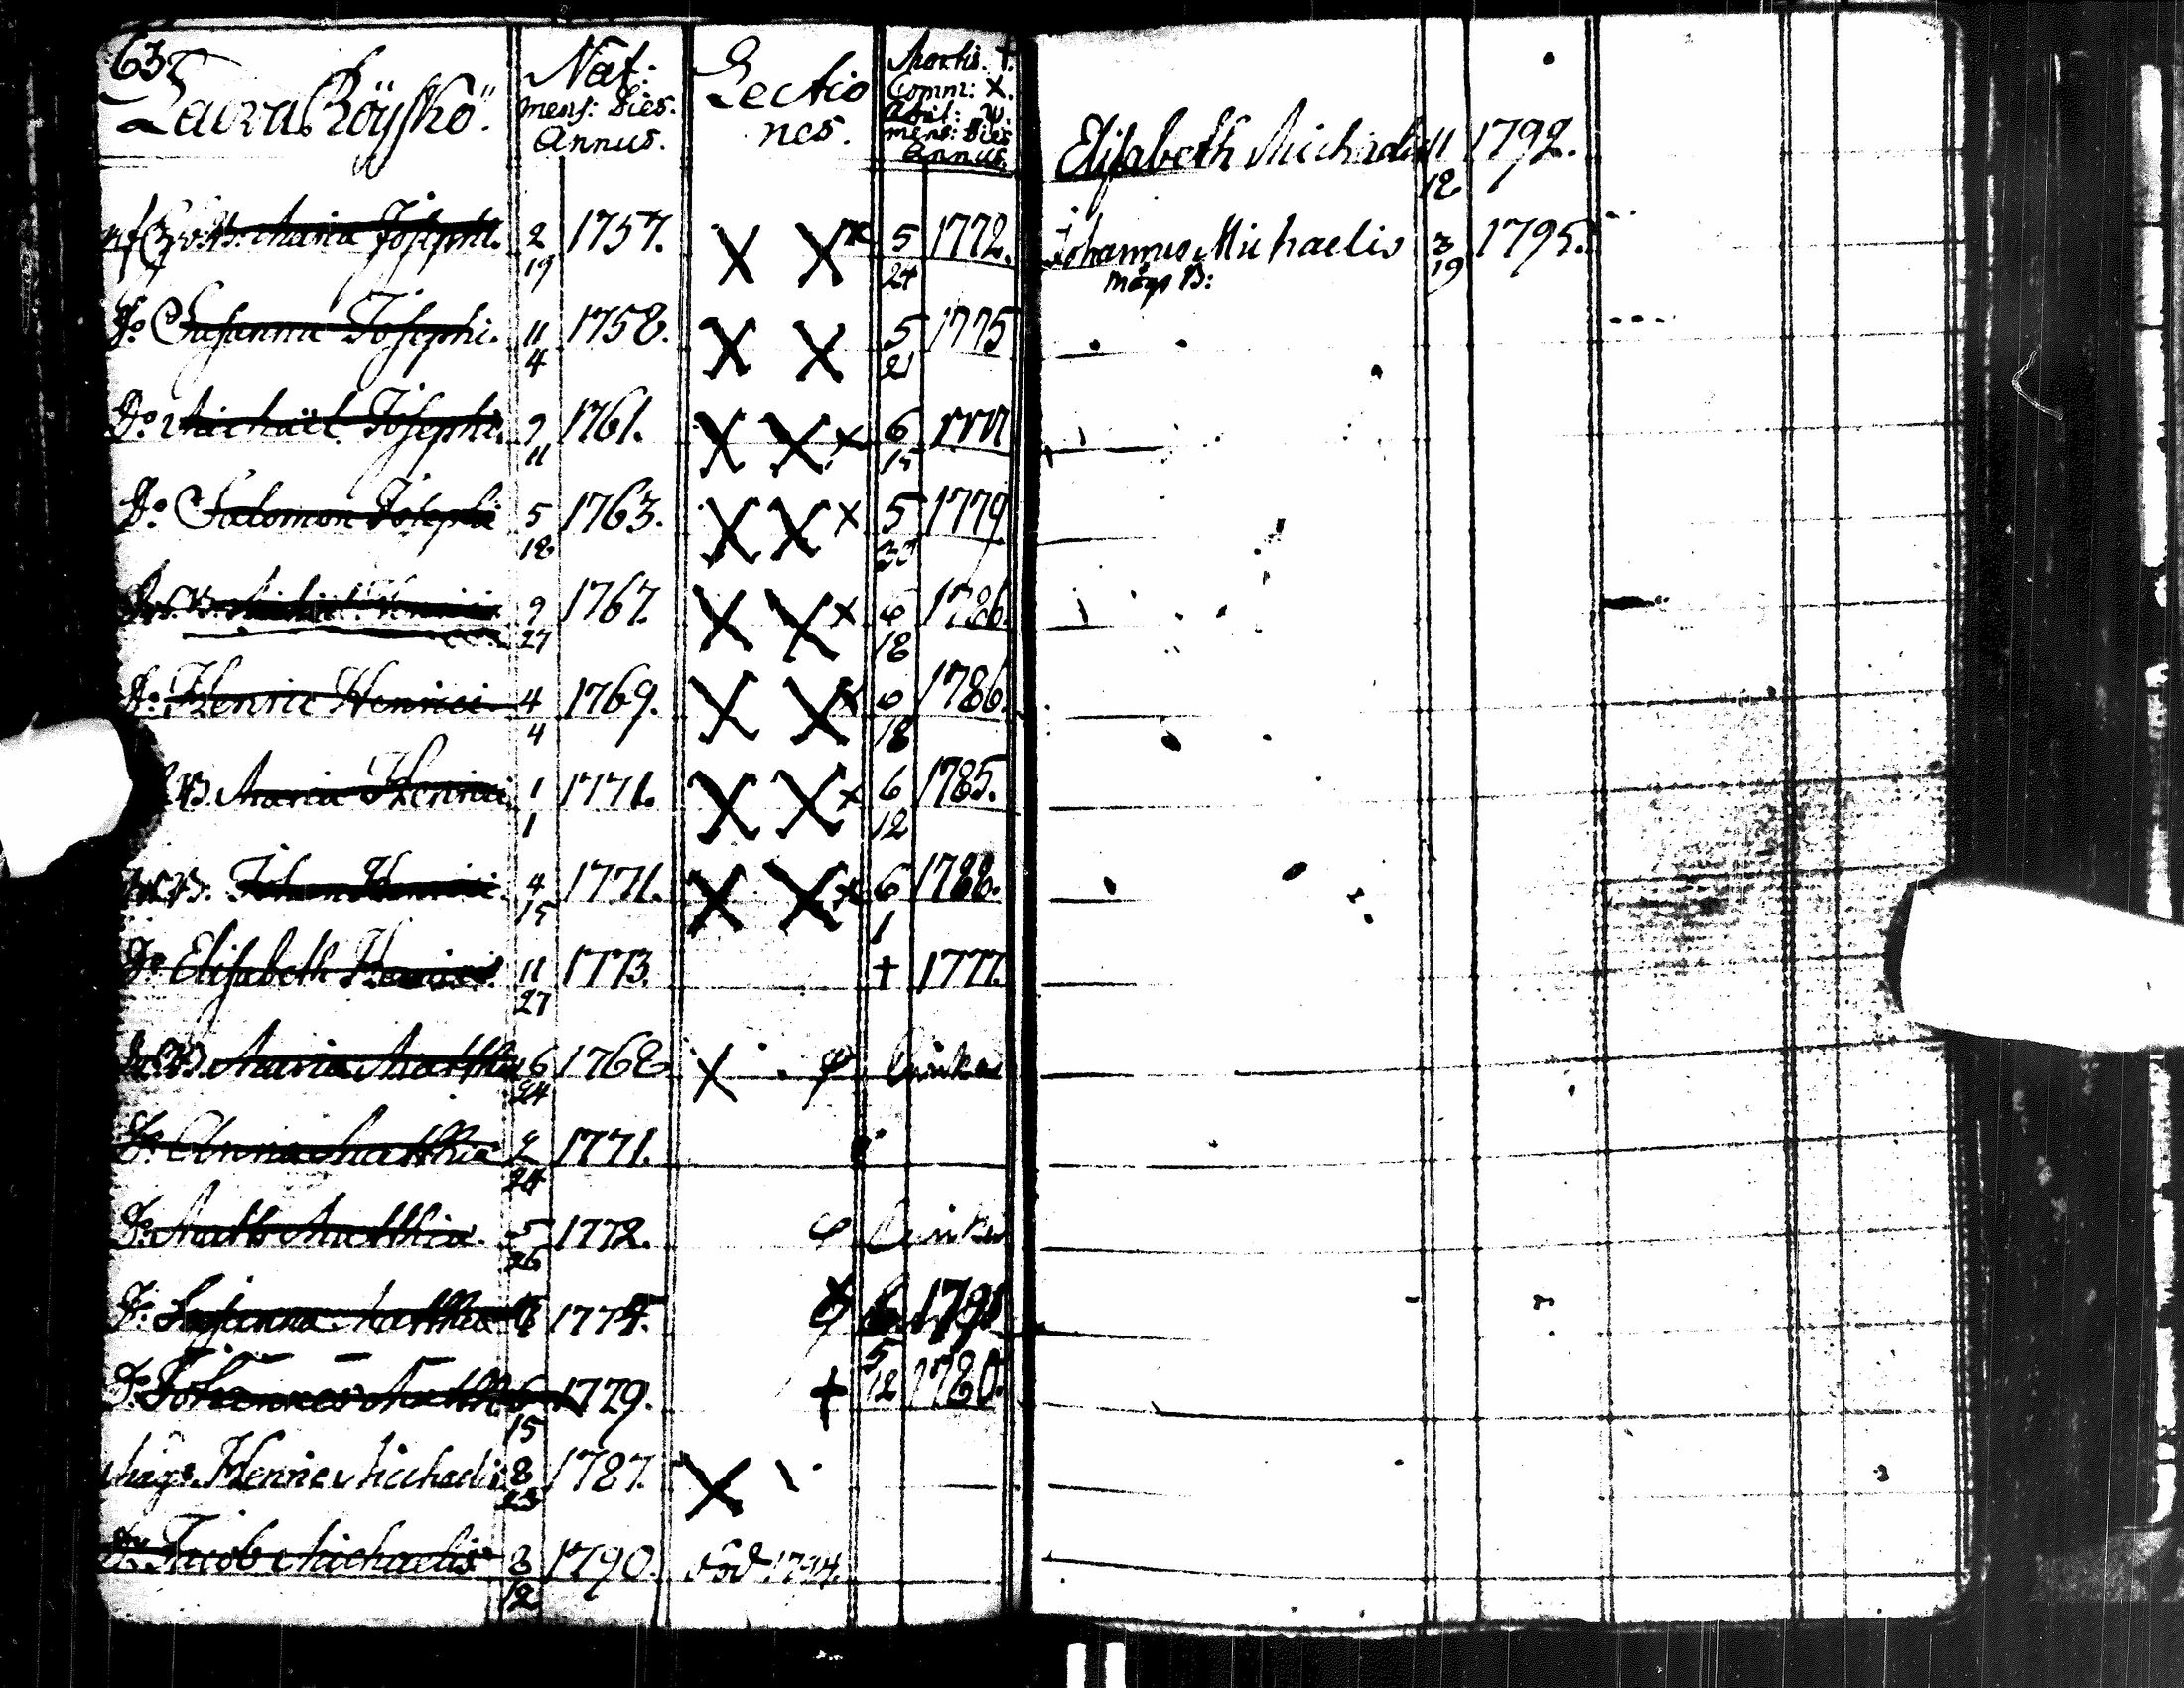 63
Nat:
mens: Dies.
Annus.
Lectio
nes.
Mortis. †.
Comm: X.
mens: Dies
Annus.
Maria Josephi. 2 19 1757. X X x 5 24 1772.
Do Susanna Josephi. 11 4 1758. X X 5 21 1775
Do Michaël Josephi. 9 11 1761. X X x 6 15
Do Salomon Josephi 5 18 1763. X X x 5 30 1779
Henrici 9 27 1767. X X x 6 18 1786.
Do Henric Henrici. 4 4 1769. X X x 6 18 1786.
Maria Henrici 1 1 1771. X X x 6 12 1785.
Johan Henrici. 4 15 1771. X X x 6 1 1788.
Do Elisabeth Henrici. 11 27 1773. † 1777.
Maria Matthiæ 6 24 1768 X
Do Anna Matthiæ 2 24 1771.
Do Matts Matthiæ. 5 26 1772.
Do Susanna Matthiæ 1774.
Do Johannes Matth 6 15 1779. † 5 12 1780.
mågs Henric Michaelis 8 23 1787. X
Do Jacob Michaelis 8 12 1790. död 1794.
Elisabeth Michaelis 11 18 1792.
Johannes Michaelis 3 19 1795.
mågs B: